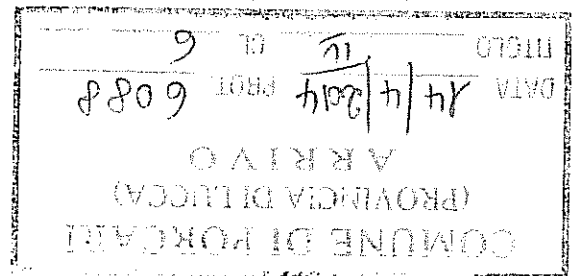 COMUNE DI PORCARI
(PROVINCIA DI LUCCA)
ARRIVO
DATA 14/4/2014 PROT. 6088
TITOLO IV CL. 6